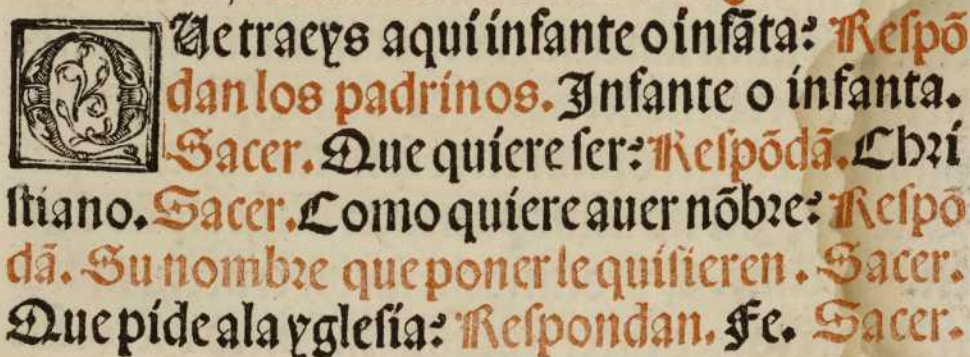 QUe traeys aqui infante o infãta: Reſpõ
dan los padrinos. Infante o infanta.
Sacer. Que quiere ſer: Reſpõdã. Chri
ſtiano. Sacer. Como quiere auer nõbre: Reſpõ
dã. Su nombre que poner le quiſieren. Sacer.
Que pide a la ygleſia: Reſpondan. Fe. Sacer.